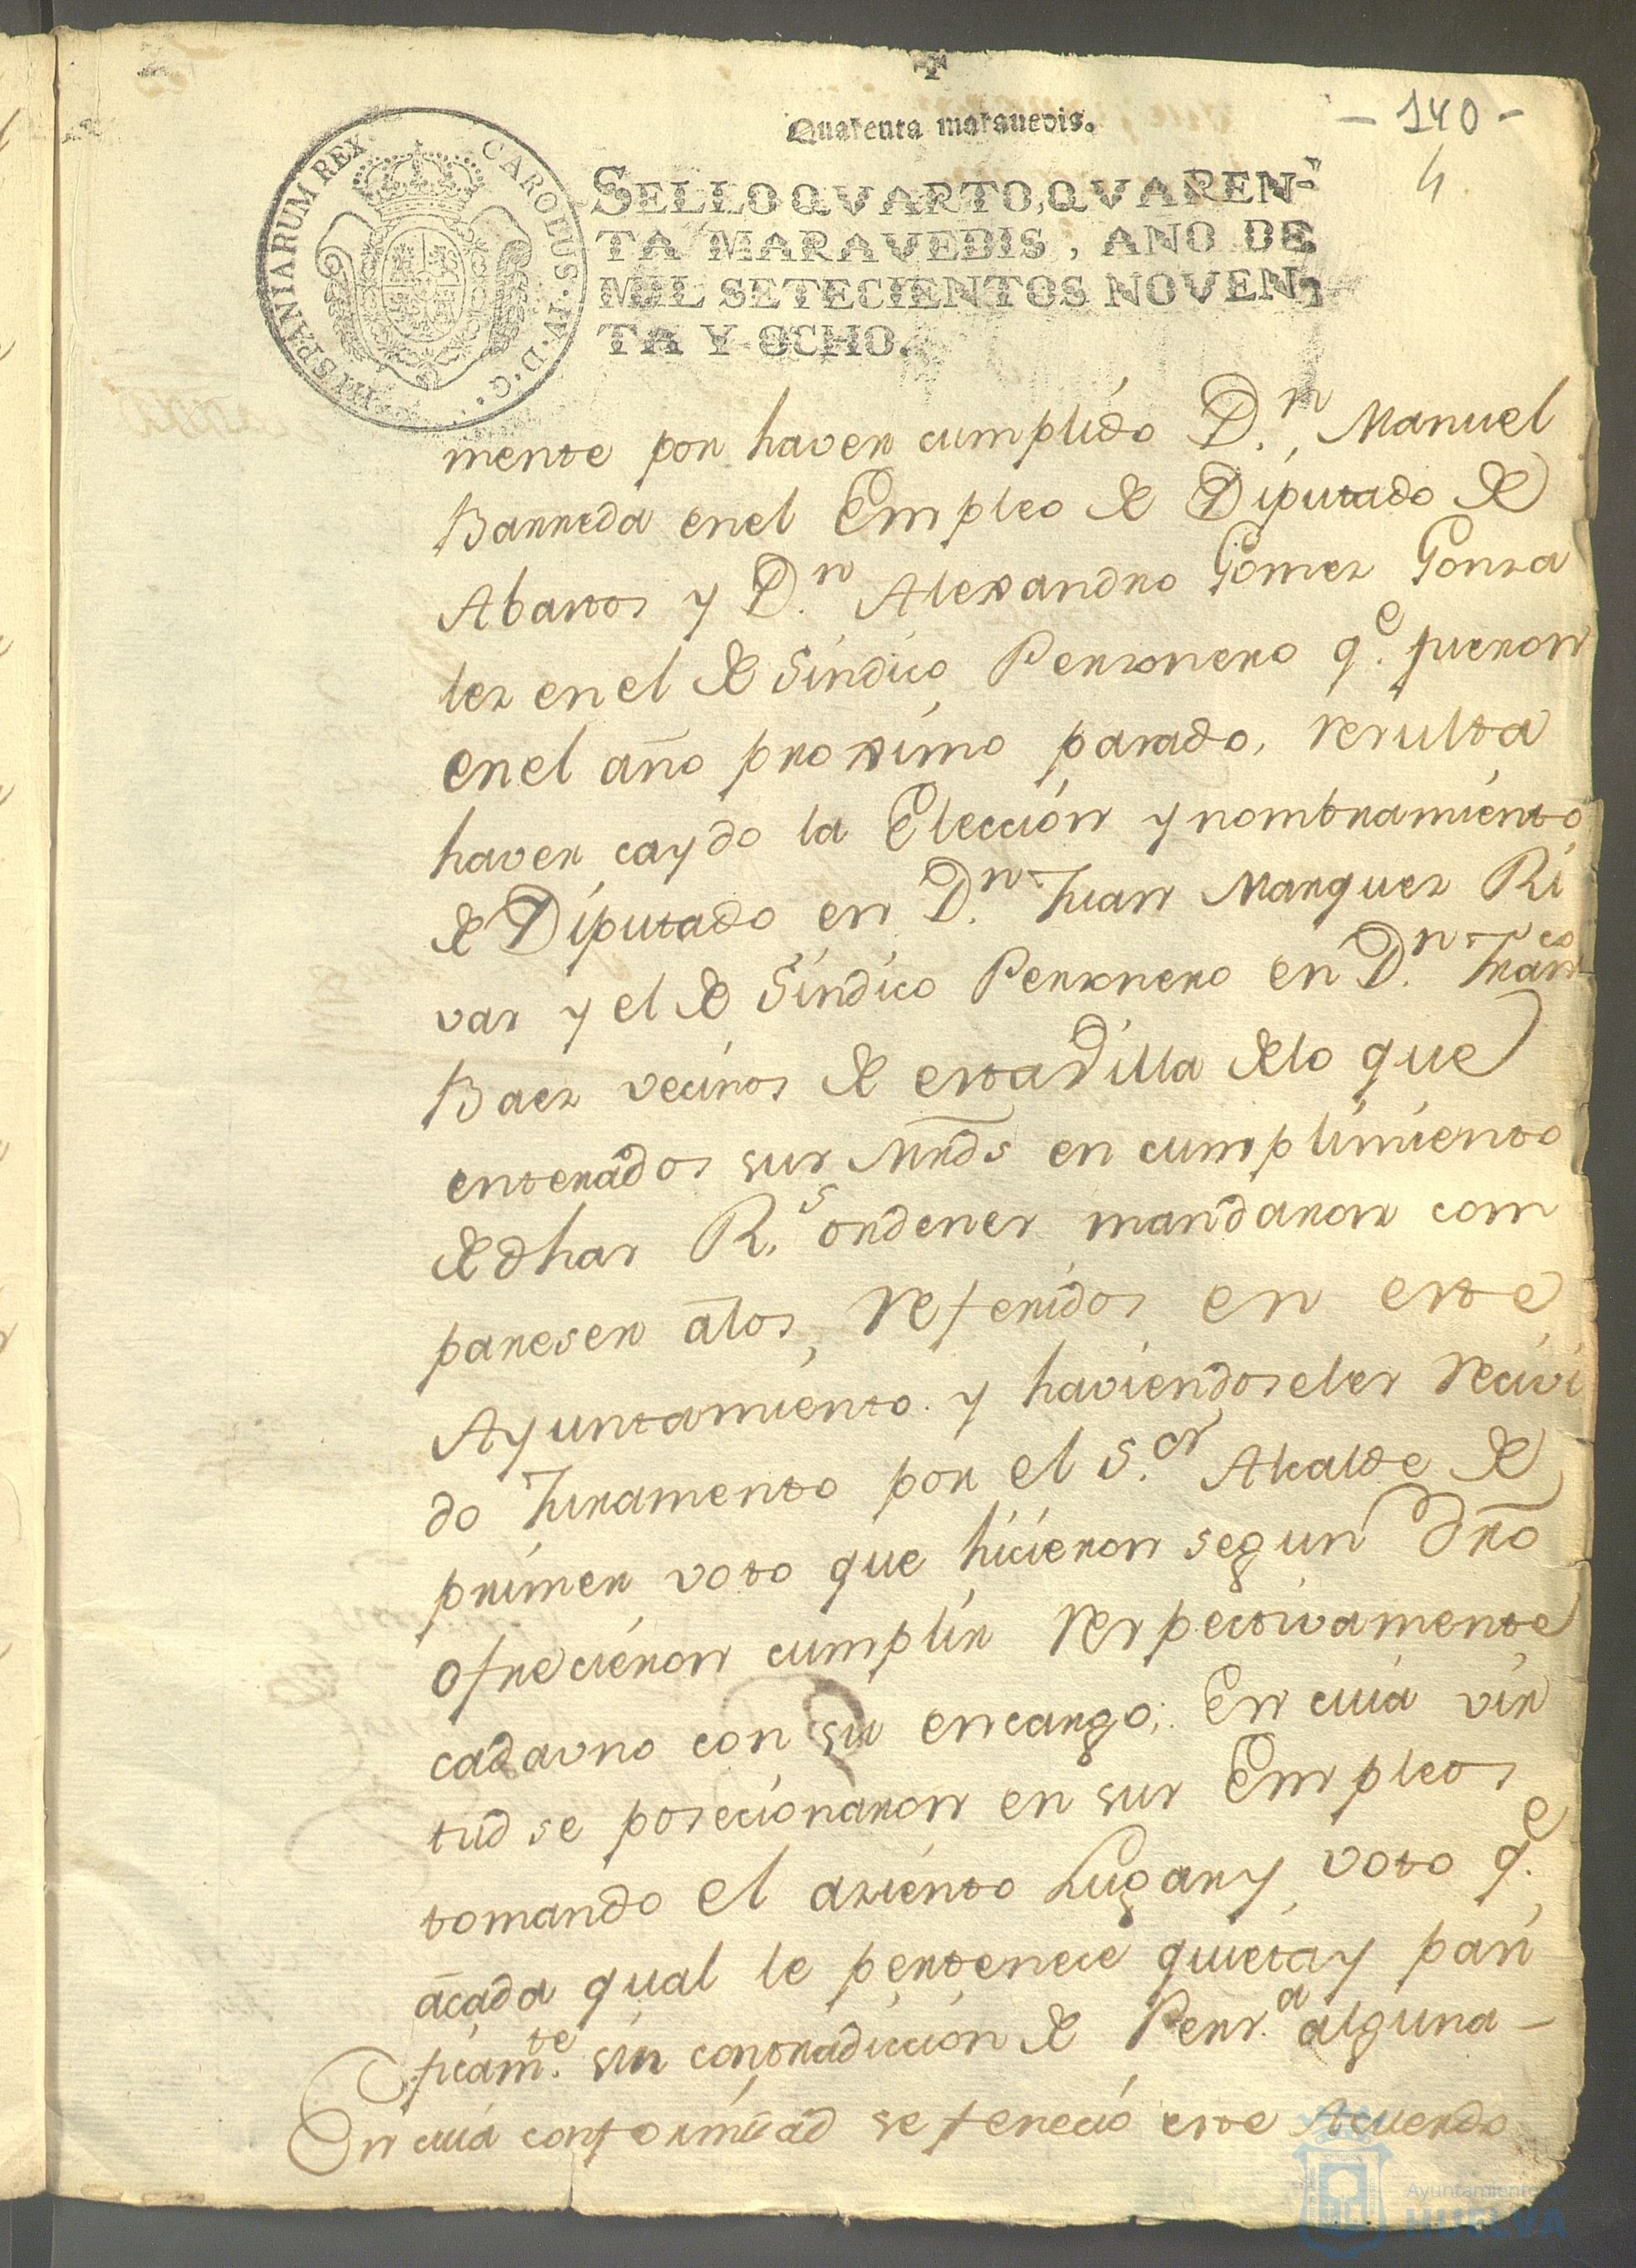 - 140 -
4
Quarenta maravedis.
HISPANIARUM REX CAROLUS·IV·D·G·
SELLO QVARTO, QVAREN-
TA MARAVEDIS, AÑO DE
MIL SETECIENTOS NOVEN-
TA Y OCHO.
mente por haver cumplido D.n Manuel
Barreda en el Empleo de Diputado de
Abastos y D.n Alexandro Gomez Gonza
lez en el de Sindico Personero q.e fueron
en el año proximo pasado, resulta
haver caydo la Elección y nombramiento
de Diputado en D.n Juan Marquez Ri
vas y el de Sindico Personero en D.n Fran.co
Baez vecinos de esta Villa de lo que
enterados sus Mrds en cumplimiento
de dhas R.s ordenes mandaron com
paresen a los referidos en este
Ayuntamiento. y haviendoseles recivi
do Juramento por el S.or Alcalde de
primer voto que hicieron segun dro
ofrecieron cumplir respectivamente
cada uno con su encargo; En cuia vir
tud se posecionaron en sus Empleos
tomando el aziento Lugar y voto q.e
a cada qual le pertenece quieta y pasi
ficam.te sin contradiccion de Pers.a alguna -
En cuia conformidad se feneció este Acuerdo
Ayuntamiento de
HUELVA